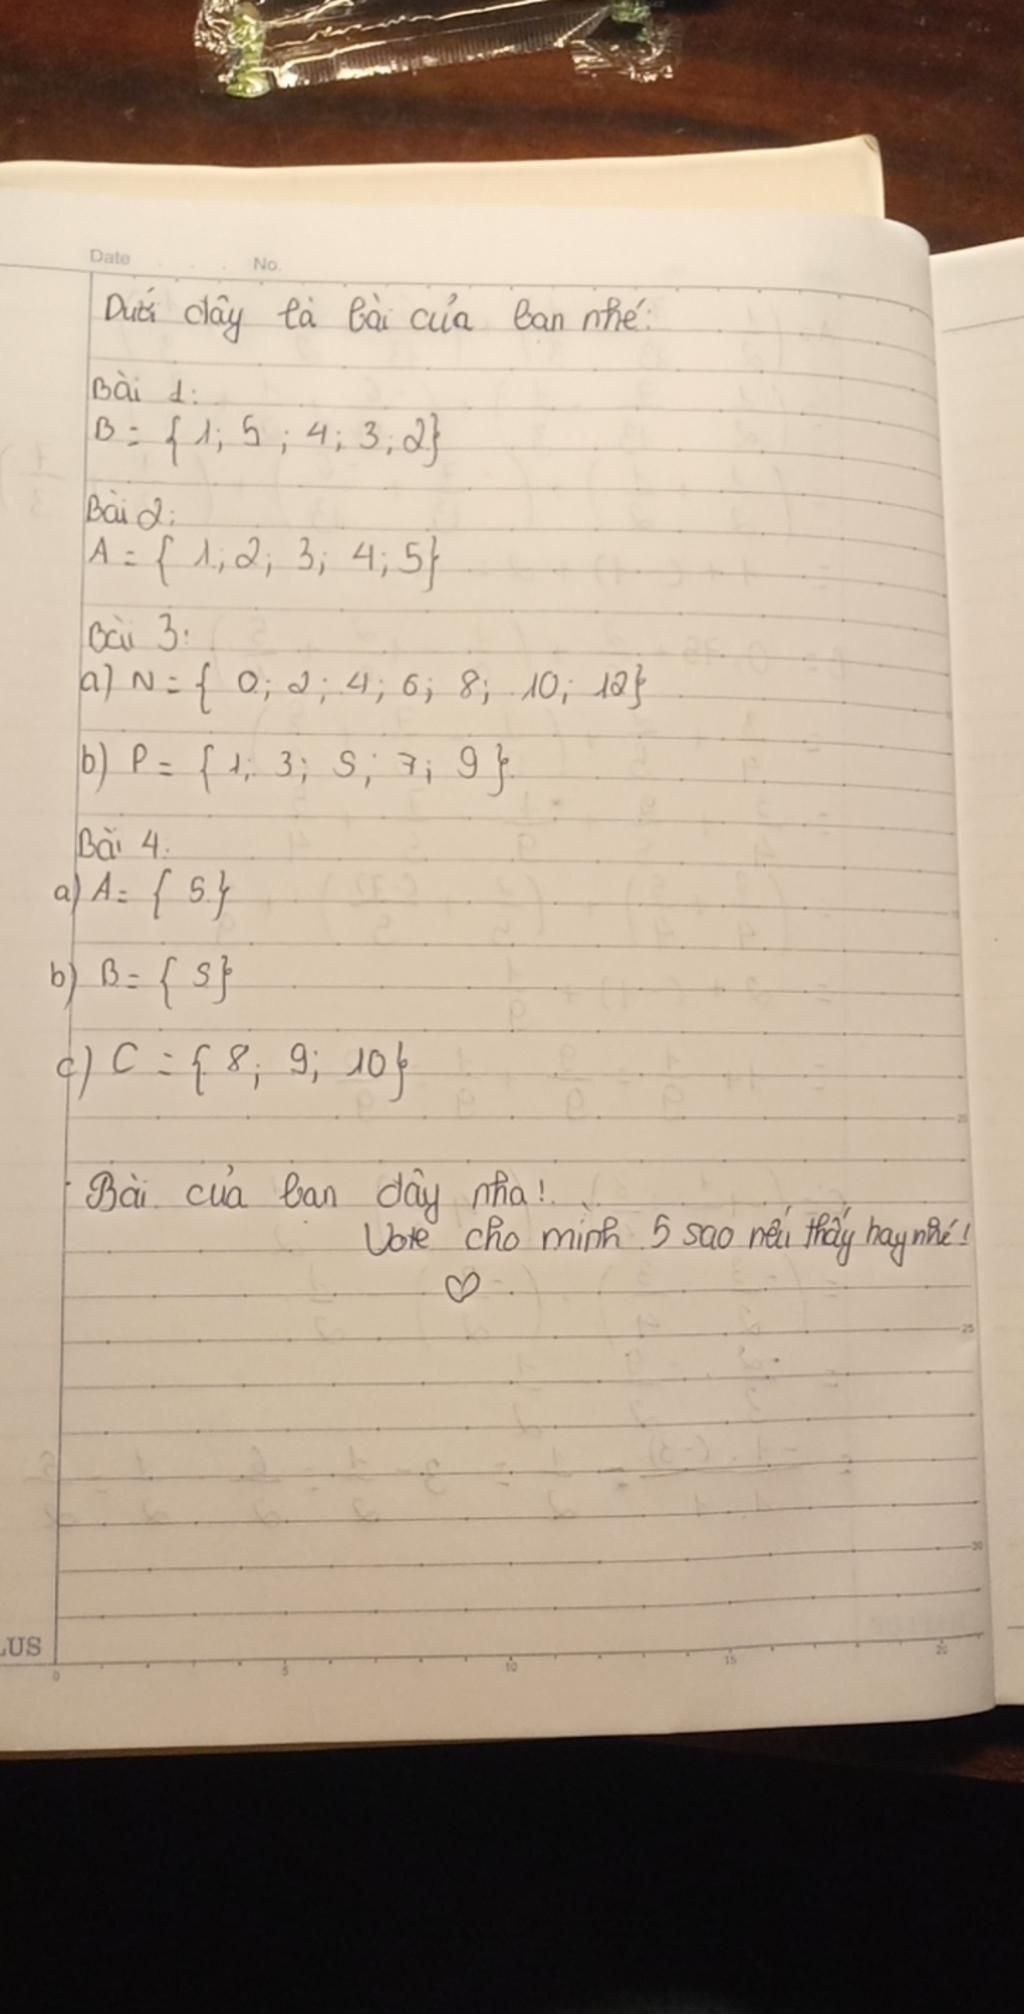 Date No.
Dưới đây là bài của bạn nhé:
Bài 1:
B = { 1; 5 ; 4; 3; 2}
Bài 2:
A = { 1; 2; 3; 4; 5}
Bài 3:
a) N = { 0; 2; 4; 6; 8; 10; 12}
b) P = { 1; 3; 5; 7; 9 }
Bài 4.
a) A = { 5 }
b) B = { 5}
c) C = { 8; 9; 10}
Bài của bạn đây nha!
Vote cho mình 5 sao nếu thấy hay nhé!
LUS
0 5 10 15 20
25
30